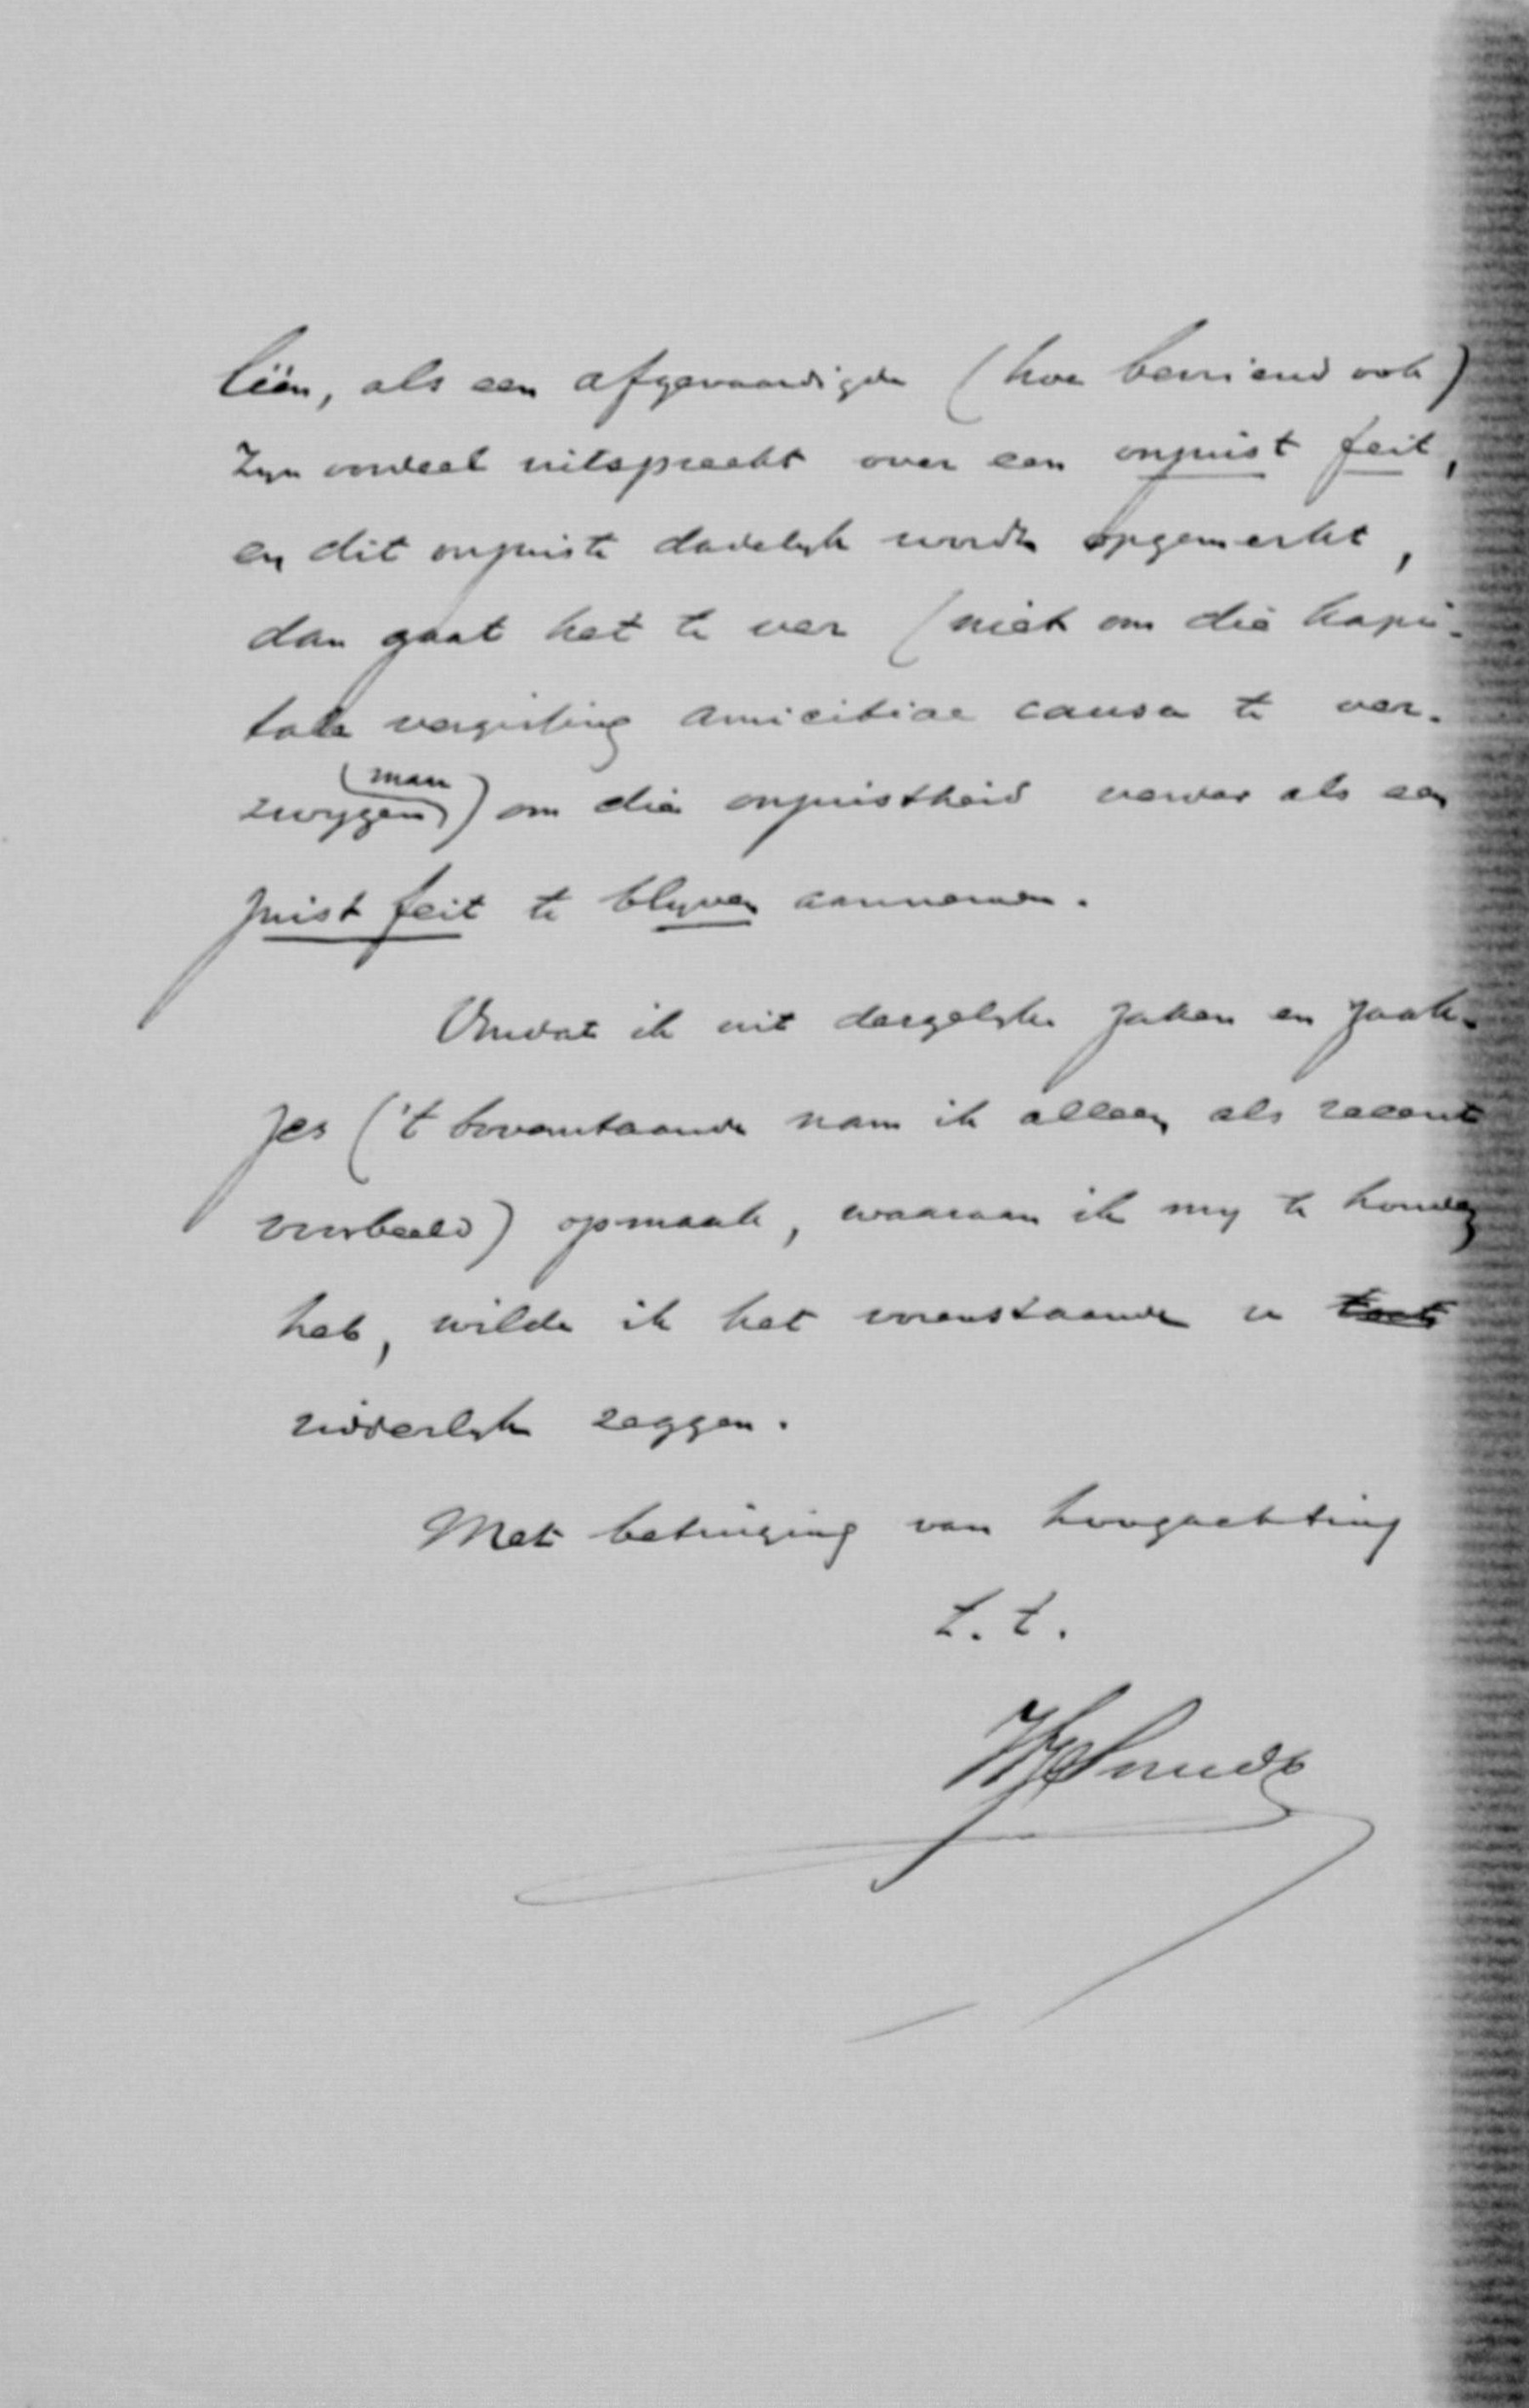 liën, als een afgevaardigde (hoe bevriend ook)
zyn oordeel uitspreekt over een onjuist feit,
en dit onjuiste dadelyk wordt opgemerkt,
dan gaat het te ver (niet om die kapi-
tale vergissing amicitiae causa te ver-
zwygen) (maar) om die onjuistheid verder als een
juist feit te blyven aannemen.
Omdat ik uit dergelyke zaken en zaak-
jes ('t bovenstaande nam ik alleen als recent
voorbeeld) opmaak, waaraan ik my te houden
heb, wilde ik het vorenstaande u
ridderlyk zeggen.
Met betuiging van hoogachting
t.t.